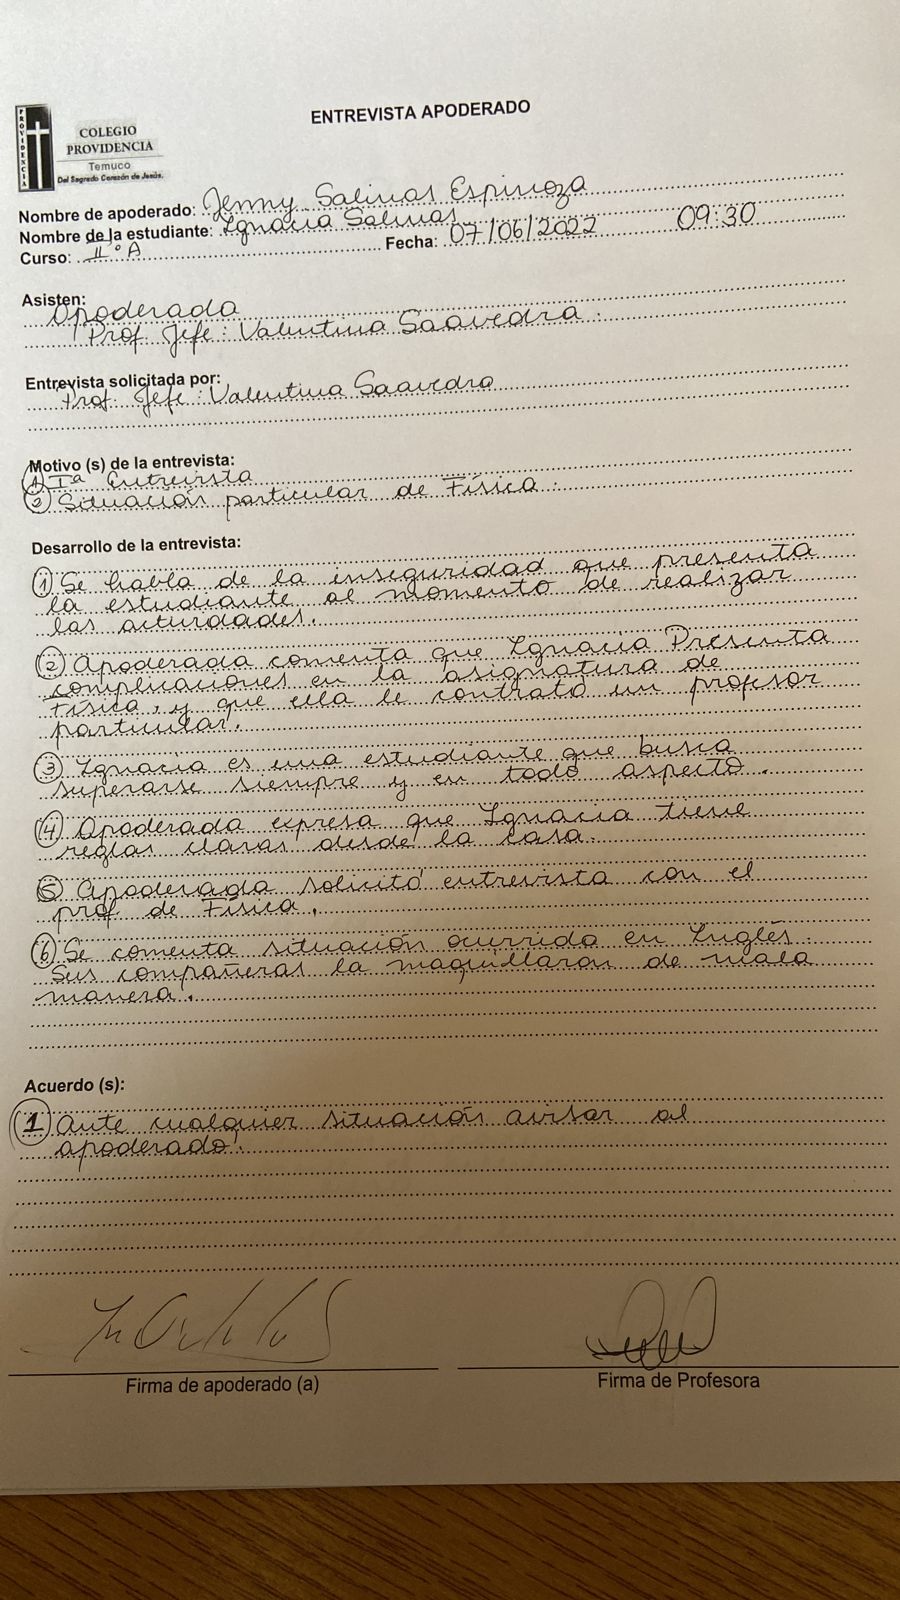 PROVIDENCIA
COLEGIO
PROVIDENCIA
Temuco
Del Sagrado Corazón de Jesús.
ENTREVISTA APODERADO
Nombre de apoderado: Jenny Salinas Espinoza
Nombre de la estudiante: Ignacia Salinas
Curso: II°A Fecha: 07/06/2022 09:30
Asisten:
Apoderada
Prof. Jefe: Valentina Saavedra.
Entrevista solicitada por:
Prof. Jefe: Valentina Saavedra
Motivo (s) de la entrevista:
① Iª Entrevista
② Situación particular de Física.
Desarrollo de la entrevista:
① Se habla de la inseguridad que presenta
la estudiante al momento de realizar
las actividades.
② Apoderada comenta que Ignacia Presenta
complicaciones en la asignatura de
Física, y que ella le contrató un profesor
particular.
③ Ignacia es una estudiante que busca
superarse siempre y en todo aspecto.
④ Apoderada expresa que Ignacia tiene
reglas claras desde la casa.
⑤ Apoderada solicitó entrevista con el
prof. de Física.
⑥ Se comenta situación ocurrida en Inglés.
Sus compañeras la maquillaron de mala
manera.
Acuerdo (s):
① Ante cualquier situación avisar al
apoderado.
Firma de apoderado (a) Firma de Profesora